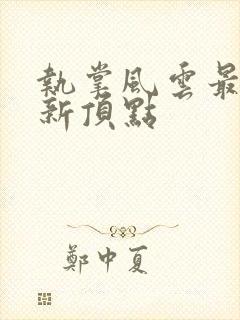 執掌風雲最
新頂點
鄭中夏